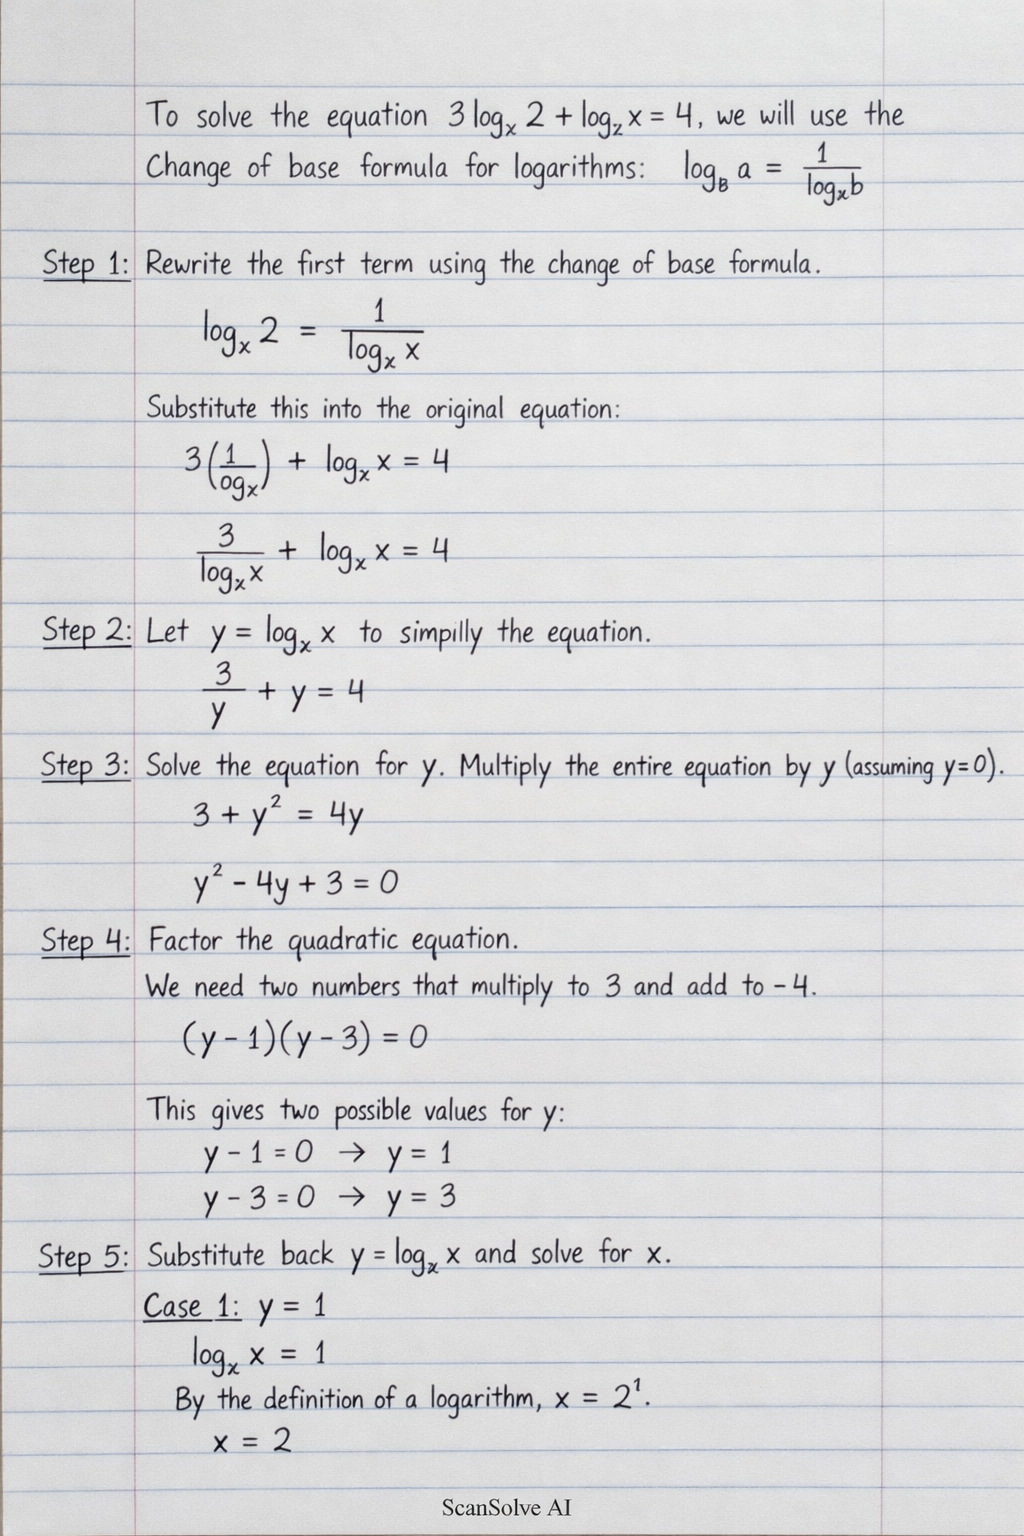 To solve the equation 3 logₓ 2 + log_z x = 4, we will use the
Change of base formula for logarithms: log_B a = 1/(logₓ b)
Step 1: Rewrite the first term using the change of base formula.
logₓ 2 = 1/(logₓ x)
Substitute this into the original equation:
3(1/ogₓ) + logₓ x = 4
3/(logₓ x) + logₓ x = 4
Step 2: Let y = logₓ x to simpilly the equation.
3/y + y = 4
Step 3: Solve the equation for y. Multiply the entire equation by y (assuming y=0).
3 + y² = 4y
y² - 4y + 3 = 0
Step 4: Factor the quadratic equation.
We need two numbers that multiply to 3 and add to -4.
(y - 1)(y - 3) = 0
This gives two possible values for y:
y - 1 = 0 → y = 1
y - 3 = 0 → y = 3
Step 5: Substitute back y = logₓ x and solve for x.
Case 1: y = 1
logₓ x = 1
By the definition of a logarithm, x = 2¹.
x = 2
ScanSolve AI